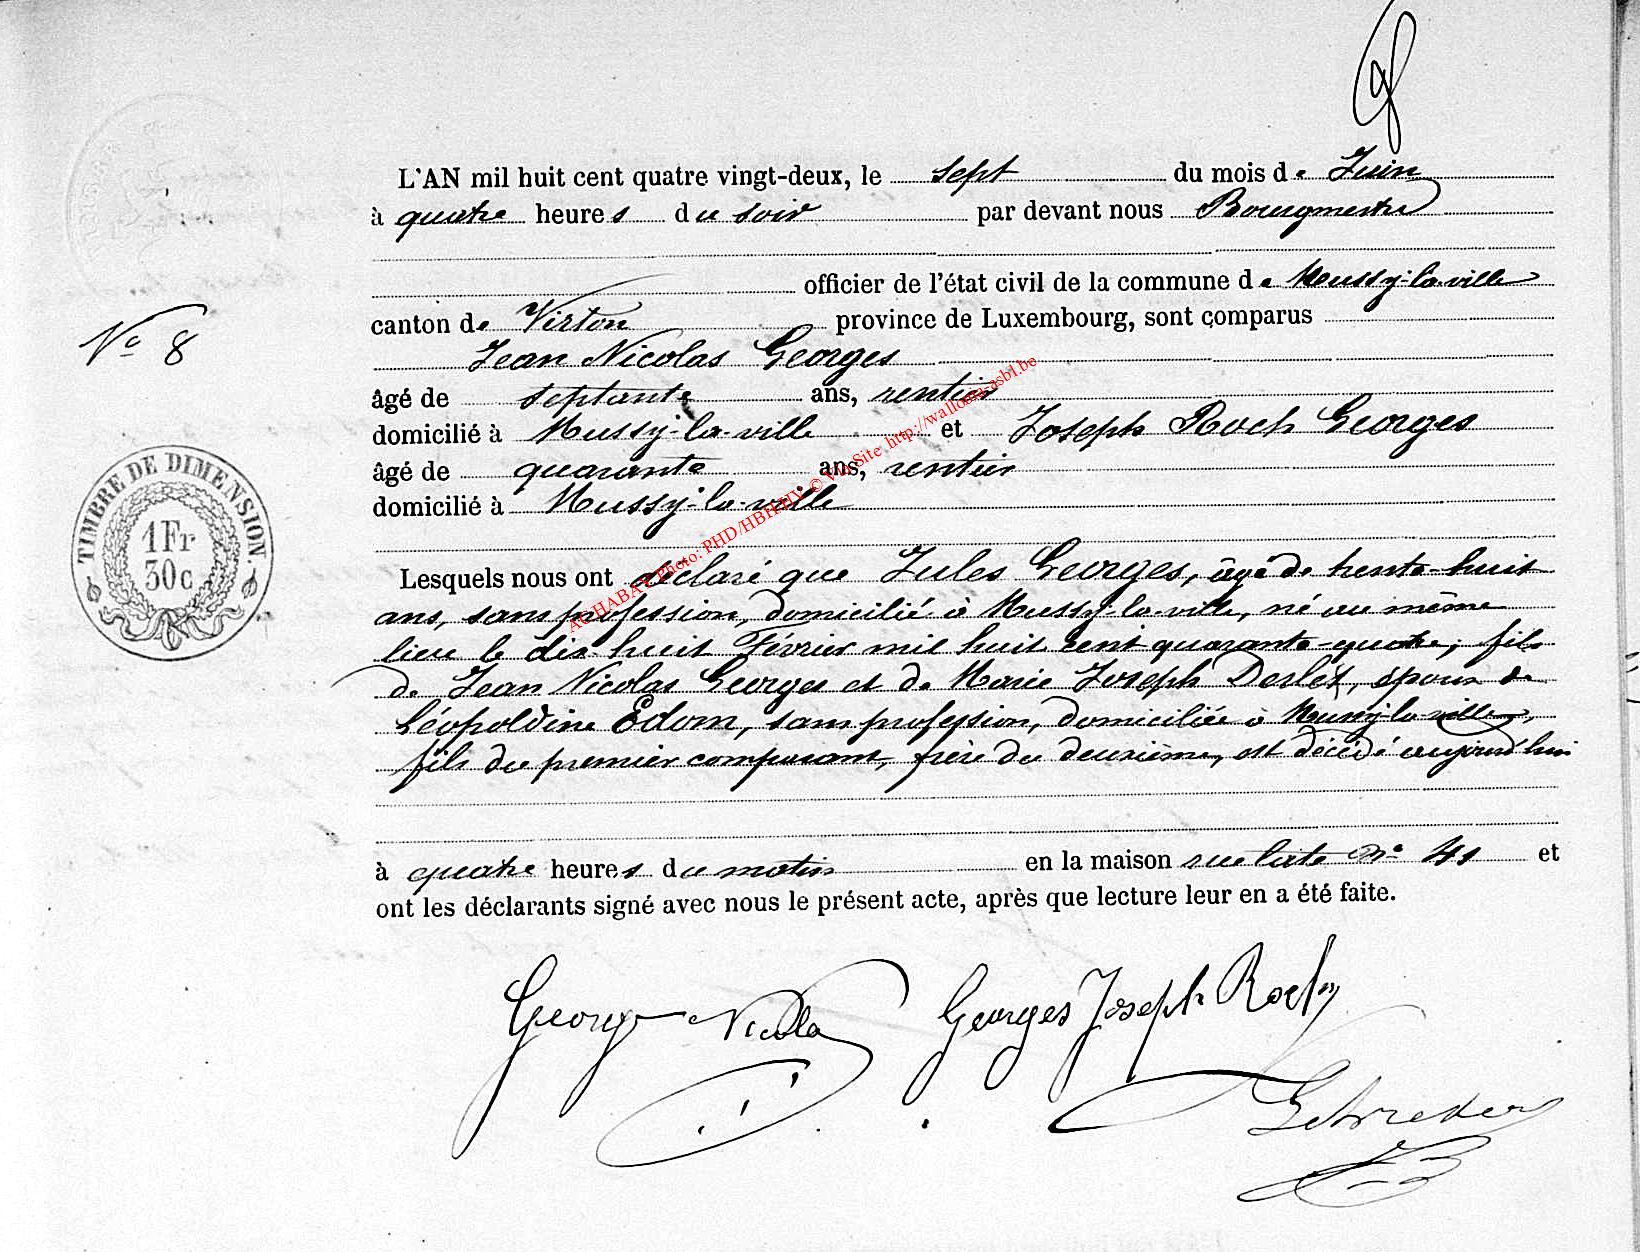 L'AN mil huit cent quatre vingt-deux, le sept du mois de Juin
à quatre heures du soir par devant nous Bourgmestre
officier de l'état civil de la commune de Mussy-la-ville
canton de Virton province de Luxembourg, sont comparus
N° 8
Jean Nicolas Georges
âgé de septante ans, rentier
domicilié à Mussy-la-ville et Joseph Roch Georges
âgé de quarante ans, rentier
domicilié à Mussy-la-ville
ACHABA © Photo: PHD/HBHHHY © Via Site http://wallonia-asbl.be
TIMBRE DE DIMENSION.
1 Fr
30 c
Lesquels nous ont déclaré que Jules Georges, âgé de trente-huit
ans, sans profession, domicilié à Mussy-la-ville, né au même
lieu le dix-huit Février mil huit cent quarante-quatre, fils
de Jean Nicolas Georges et de Marie Joseph Deslet, époux de
Léopoldine Edom, sans profession, domiciliée à Mussy-la-ville,
fils du premier comparant, frère du deuxième, est décédé aujourd'hui
à quatre heures du matin en la maison rue late N° 41 et
ont les déclarants signé avec nous le présent acte, après que lecture leur en a été faite.
Georges Nicolas Georges Joseph Roch